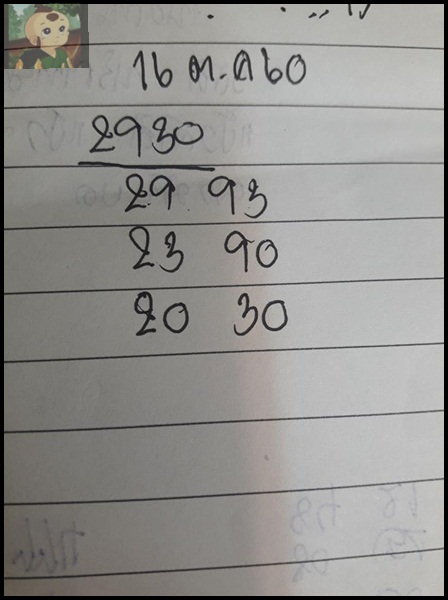 16 ต.ค 60
2930
29 93
23 90
20 30